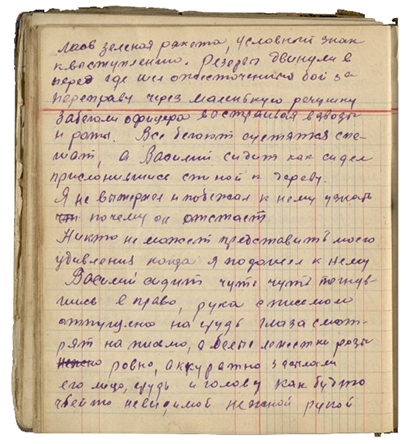 лась зеленая ракета, условный знак
к выступлению. Резервы двинули в
перед где шел ожесточенный бой за
переправу через маленькую речушку
Забегали офицера выстраивая взвода
и роты. Все бегают суетятся спе-
шат, а Василий сидит как сидел
прислонившись спиной к дереву.
Я не вытерпел и побежал к нему узнать
почему он отстает
Никто не может представить моего
удивления когда я подошел к нему
Василий сидит чуть чуть погнув-
шись в право, рука с письмом
опущено на грудь глаза смот-
рят на письмо, а белые лепестки розы
ровно, аккуратно засыпали
его лицо, грудь и голову как будто
чьей то невидимой нежной рукой